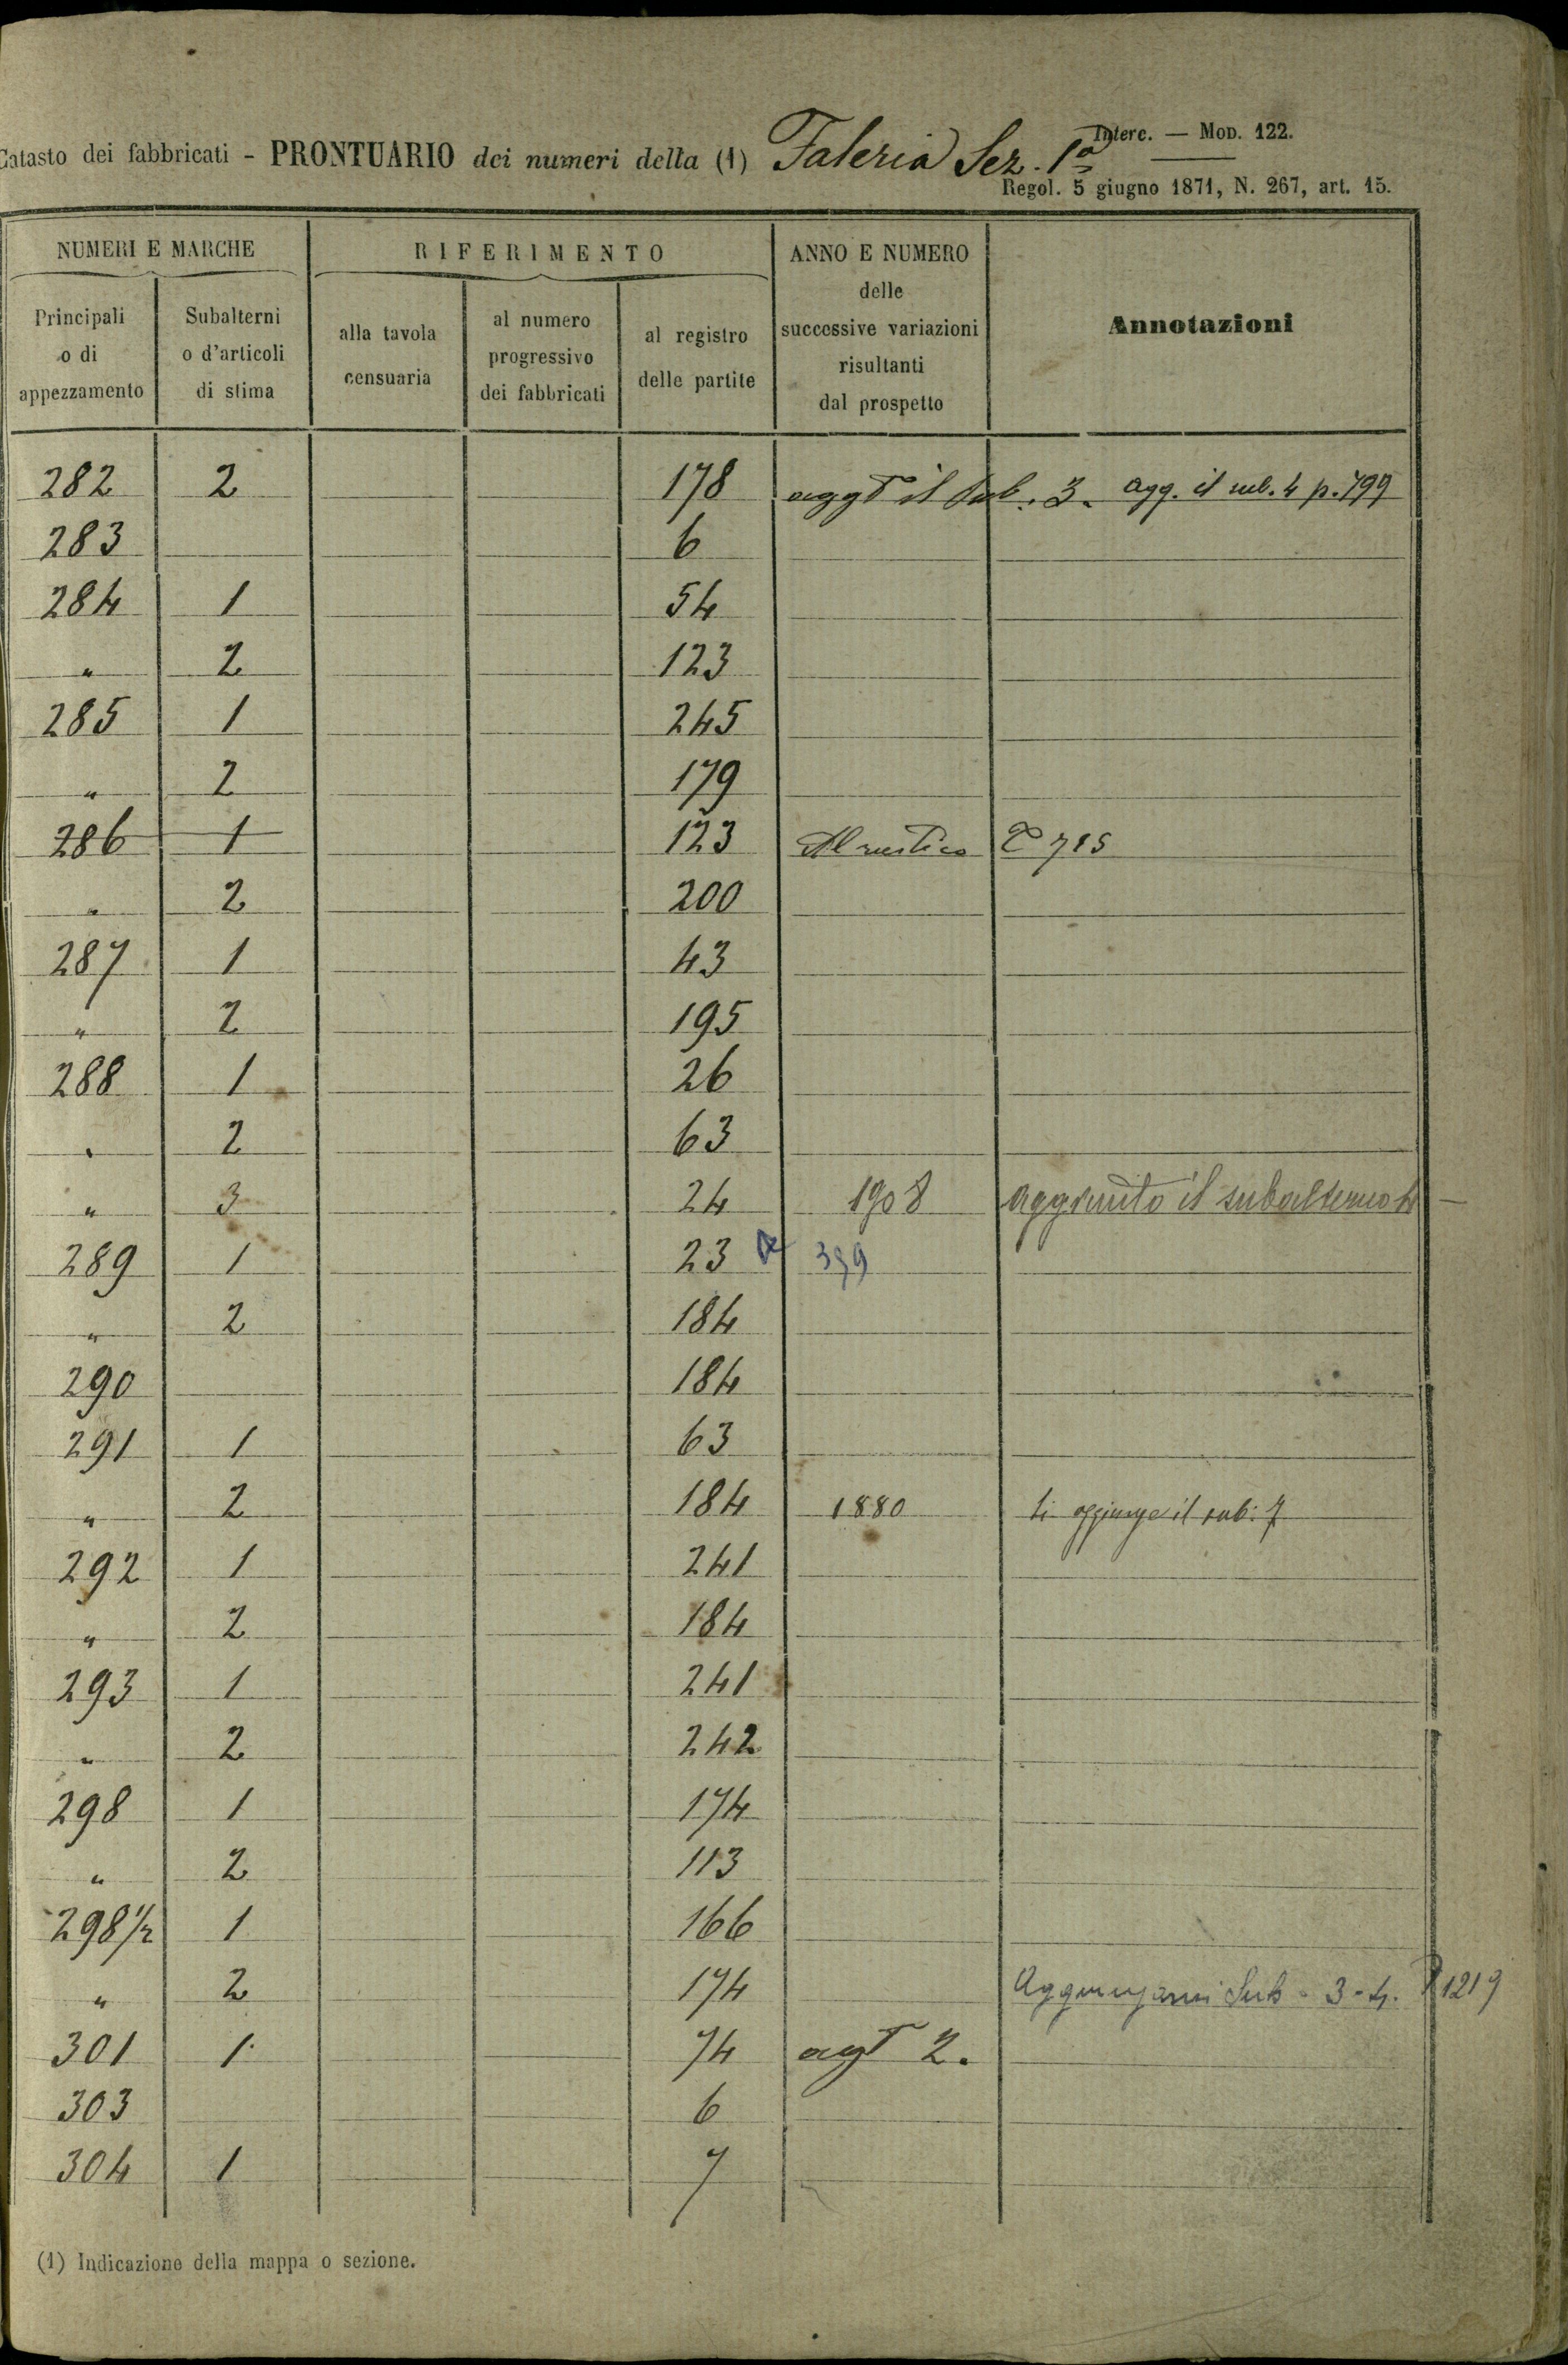 Interc. — Mod. 122.
Catasto dei fabbricati - PRONTUARIO dei numeri della (1) Faleria Sez. 1ª
Regol. 5 giugno 1871, N. 267, art. 15.
NUMERI E MARCHE RIFERIMENTO ANNO E NUMERO delle successive variazioni risultanti dal prospetto Annotazioni
Principali o di appezzamento Subalterni o d'articoli di stima alla tavola censuaria al numero progressivo dei fabbricati al registro delle partite
282 2 178 aggt il sub. 3. agg. il sub. 4 p. 799
283 6
284 1 54
" 2 123
285 1 245
" 2 179
286 1 123 Al rustico 715
" 2 200
287 1 43
" 2 195
288 1 26
" 2 63
" 3 24 1908 aggiunto il subalterno 4
289 1 23 399
" 2 184
290 184
291 1 63
" 2 184 1880 Si aggiunge il sub: 7
292 1 241
" 2 184
293 1 241
" 2 242
298 1 174
" 2 113
298 1/2 1 166
" 2 174 Sub - 3-4. P 1219
301 1 74 agt 2.
303 6
304 1 7
(1) Indicazione della mappa o sezione.